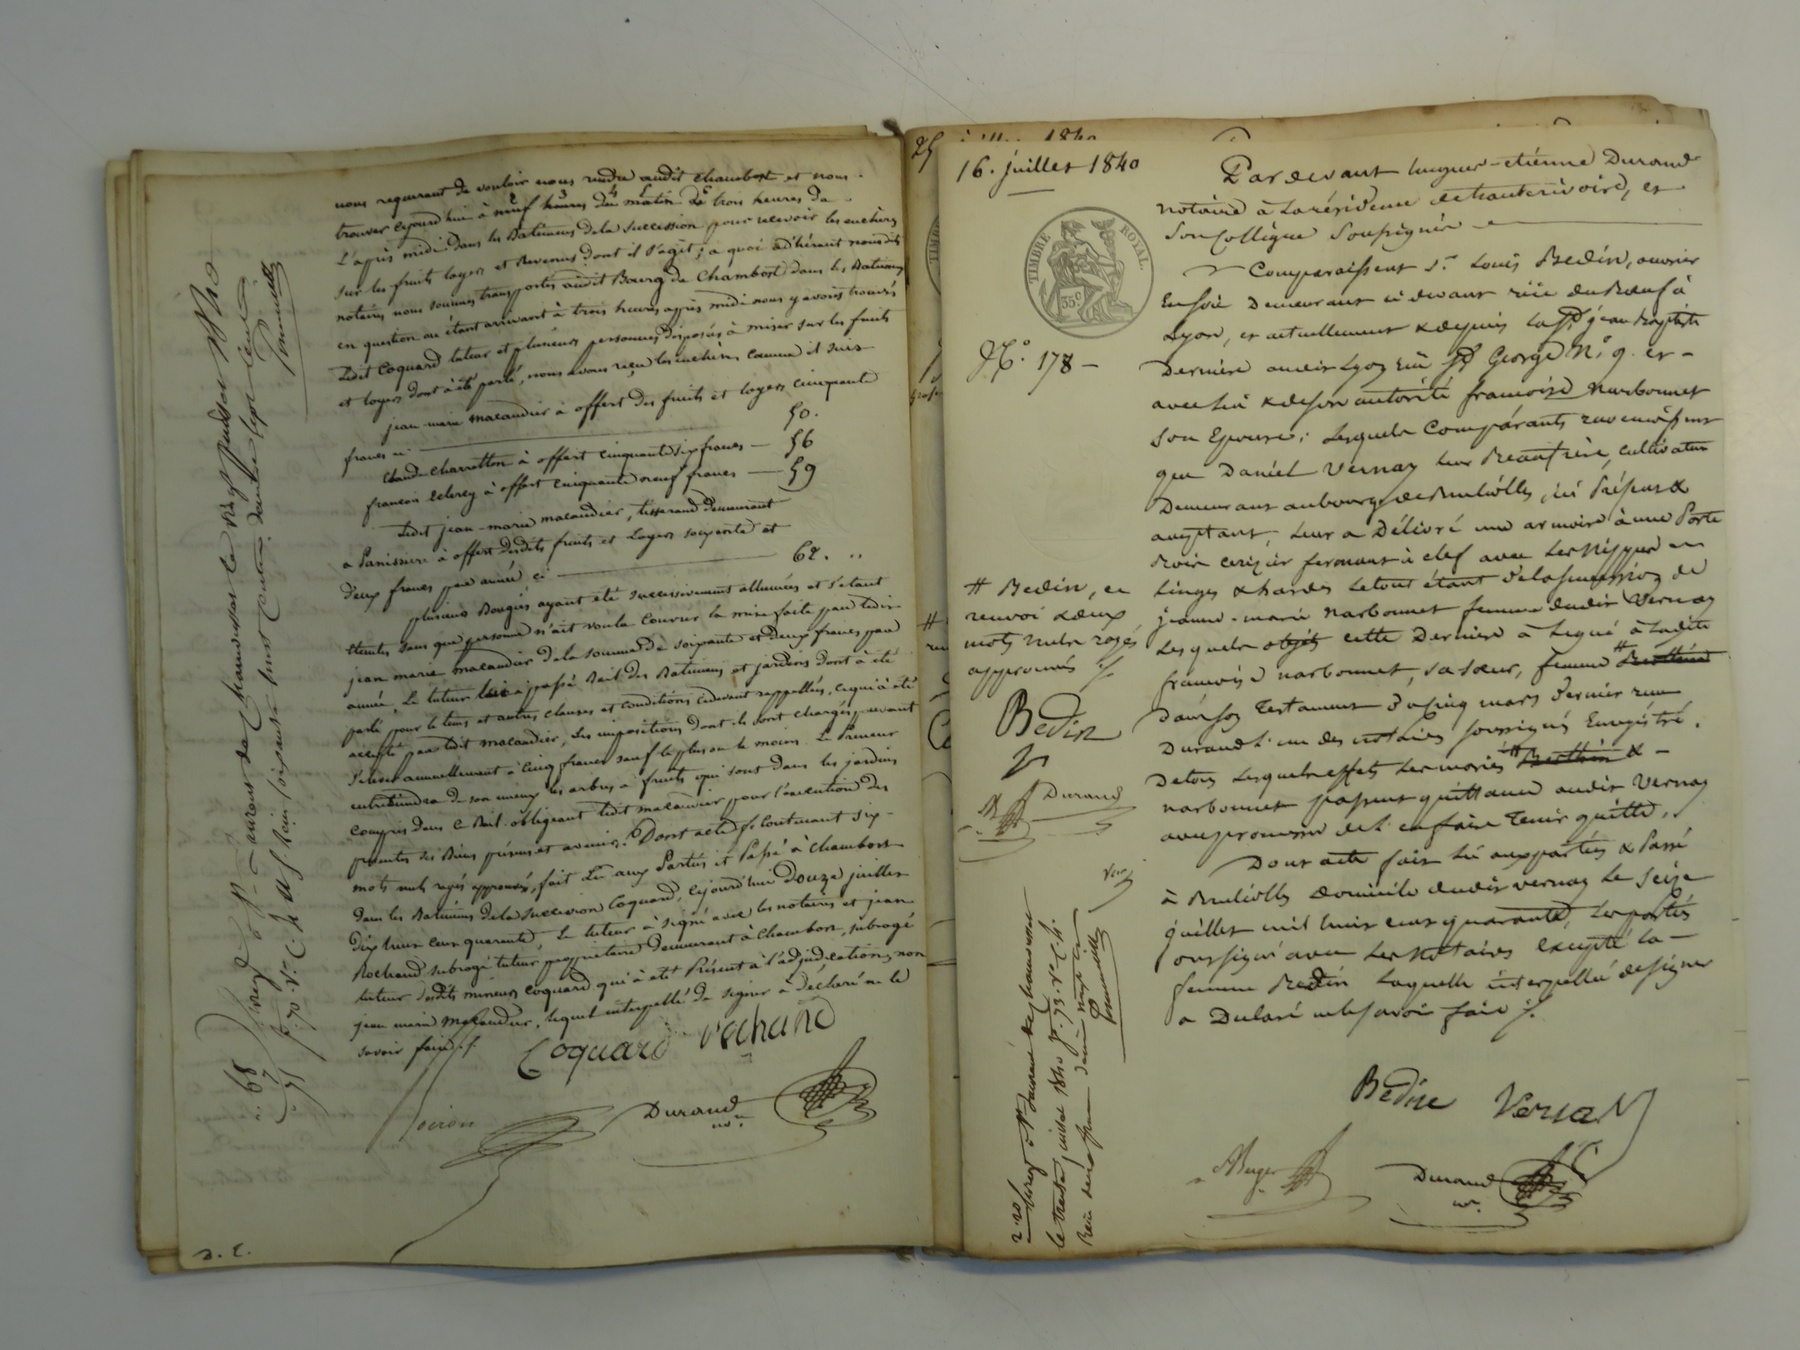 nous requerant de vouloir nous rendre audit Chambost et nous
trouver cejourd'hui à neuf heures du matin de trois heures de
L'après midi dans les Batimens de la succession pour recevoir les enchères
sur les fruits loyers et Revenus dont il s'agit; a quoi adhérant nousdits
notaires nous sommes transportés audit Bourg de Chambost dans les Batimens
en question ou étant arrivant à trois heures après midi nous y avons trouvés
Ledit Coquard tuteur et plusieurs personnes disposés à miser sur les fruits
et loyers dont à été parlé, nous avons reçu les enchères comme il suit
jean-marie macaudier à offert des fruits et loyers cinquante
francs ci — 50.
Claude Charretton à offert cinquante six francs — 56
françois à offert cinquante neuf francs — 59
Ledit jean-marie macaudier, tisserand demeurant
a Panissiere à offert desdits fruits et loyers soixante et
deux francs par année ci — 62. ..
plusieurs Bougies ayant été successivement allumées et s'étant
éteintes sans que personne n'ait voulu couvrir la mise faite par ledit
jean marie macaudier de la somme de soixante et deux francs par
année, Le tuteur lui à passé Bail des Batimens et jardins dont à été
parlé pour le tems et autres clauses et conditions cidevant rappellées, ce qui à été
accepté par ledit macaudier, Les impositions dont ils sont chargés peuvent
s'élever annuellement à cinq francs sauf le plus ou le moins. Le Preneur
entretiendra de son mieux les arbres à fruits qui sont dans les jardins
compris dans le Bail. obligeant ledit macaudier pour l'execution des
présentes ses Biens présens et avenirs. Dont acte contenant six
mots nuls rayés approuvés, fait Lu aux Parties et Passé à Chambost
dans les Batimens de la succession Coquard, cejourd'hui Douze juillet
dix huit cent quarante, Le tuteur à signé avec les notaires et jean
Rochand subrogé tuteur propriétaire demeurant à Chambost, subrogé
tuteur desdits mineurs Coquard qui à été Présent à l'adjudication, non
jean marie Macaudier, lequel interpellé de signer à déclaré ne le
savoir faire
Coquard Rochand
Durand
nre.
D. C.
16. juillet 1840
TIMBRE ROYAL
35c
No. 178 —
Pardevant hugues-etiénne Durand
notaire à la résidence de hauterivoire, et
son Collègue Soussignés
Comparaissent Sr. Louis Bedin, ouvrier
en soie Demeurant ci devant rüe du Boeuf à
Lyon, et actuellement & depuis la St. jean Baptiste
Dernière audit Lyon rüe St George No. 9. et —
avec lui & de son autorité françoise Narbonnet
son Epouse; Lesquels Comparants reconnoissent
que Daniel Vernay leur Beaufrère, cultivateur
Demeurant au bourg de Brulliolles, ici Présent &
acceptant, leur a Délivré une armoire à une Porte
Bois cerisier fermant à clef avec Les Nippes
Linges & hardes Le tout étant de la succession de
jeanne-marie Narbonnet femme dudit Vernay
Lesquels objets cette Dernière à Légué à Ladite
françoise narbonnet, sa soeur, femme #
Dans son Testament du cinq mars dernier reçu
Durand l'un des notaires soussignés Enregistré.
De tous Lesquels effets Les mariés # & —
narbonnet passent quittance audit Vernay
avec promesse de l'en faire Tenir quitte.
Dont acte fait Lu aux parties & Passé
à Brulliolles domicile dudit vernay Le Seize
juillet mil huit cent quarante, Les parties
ont signé avec Les Notaires excepté la —
femme Bedin Laquelle interpellée de signer
a Déclaré ne le savoir faire
# Bedin, ce
renvoi & deux
mots nuls rayés
approuvés
Bedin
Durand
Bedin Vernay
Berger
Durand
nre.